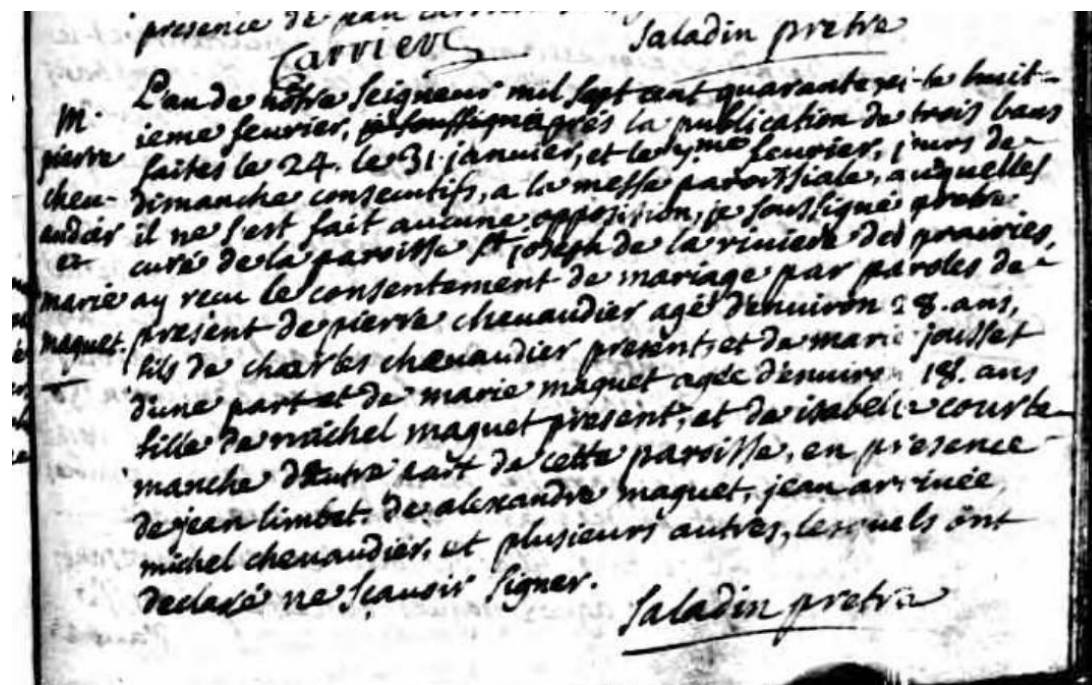 presence de jean carrier
Carrier Saladin pretre
M. pierre cheu- audier et marie maquet.
L'an de nôtre Seigneur mil sept cent quarante le huit-
ieme feurier, je soussigné après la publication de trois bans
faites le 24. le 31. janvier, et le 7.me feurier, jours de
dimanche consecutifs, a la messe paroissiale, auquelles
il ne s'est fait aucune opposition, je soussigné pretre
curé de la paroisse St joseph de la riviere des prairies,
ay recu le consentement de mariage par paroles de
present de pierre cheuaudier agé d'enuiron 28. ans,
fils de charles cheuaudier present, et de marie jousset
d'une part et de marie maquet agée d'enuiron 18. ans
fille de michel maquet present, et de isabelle courte
manche d'autre part de cette paroisse, en presence
de jean limbet, de alexandre maquet, jean
michel cheuaudier, et plusieurs autres, lesquels ont
declaré ne sçauoir signer.
Saladin pretre